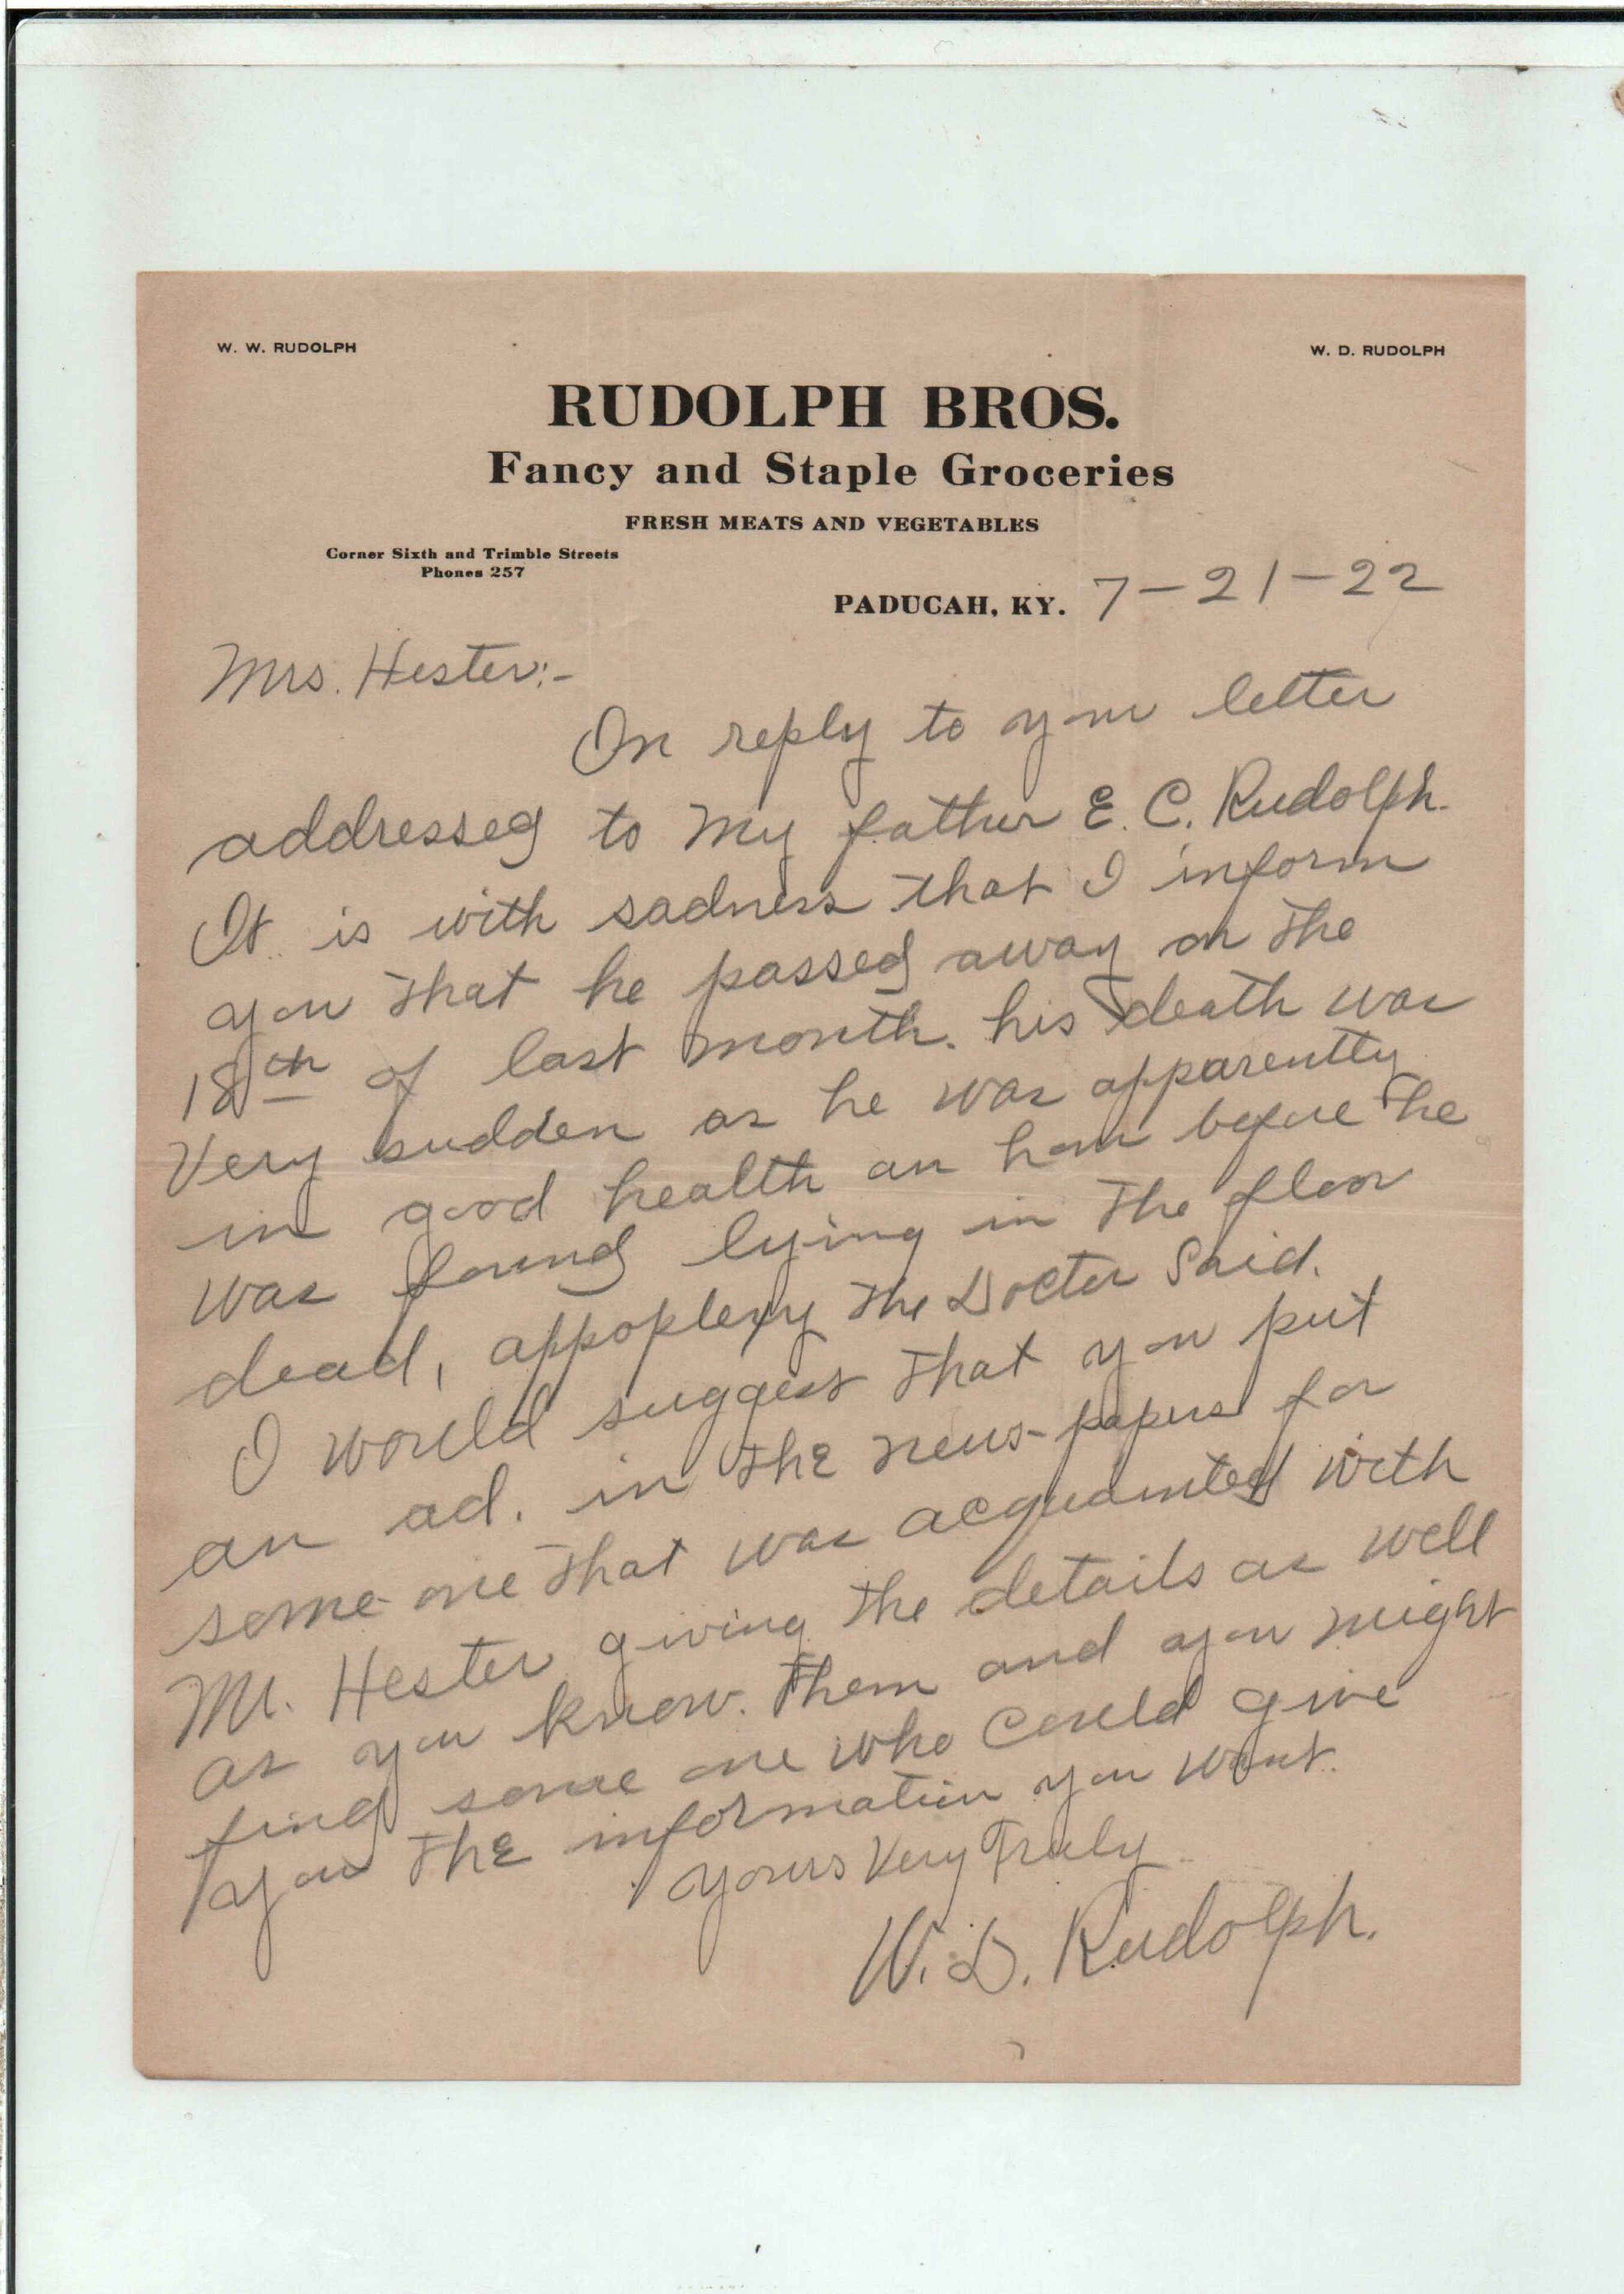 W. W. RUDOLPH
W. D. RUDOLPH
RUDOLPH BROS.
Fancy and Staple Groceries
FRESH MEATS AND VEGETABLES
Corner Sixth and Trimble Streets
Phones 257
PADUCAH, KY. 7-21-22
Mrs. Hester:-
On reply to your letter
addressed to my father E. C. Rudolph.
It is with sadness that I inform
you that he passed away on the
18th of last month. his death was
Very sudden as he was apparently
in good health an hour before he
was found lying in the floor
dead, appoplexy the Doctor Said.
I would suggest that you put
an ad. in the news-papers for
some one that was acquainted with
Mr. Hester giving the details as well
as you know them and you might
find some one who could give
you the information you want.
Yours Very Truly
W. D. Rudolph.